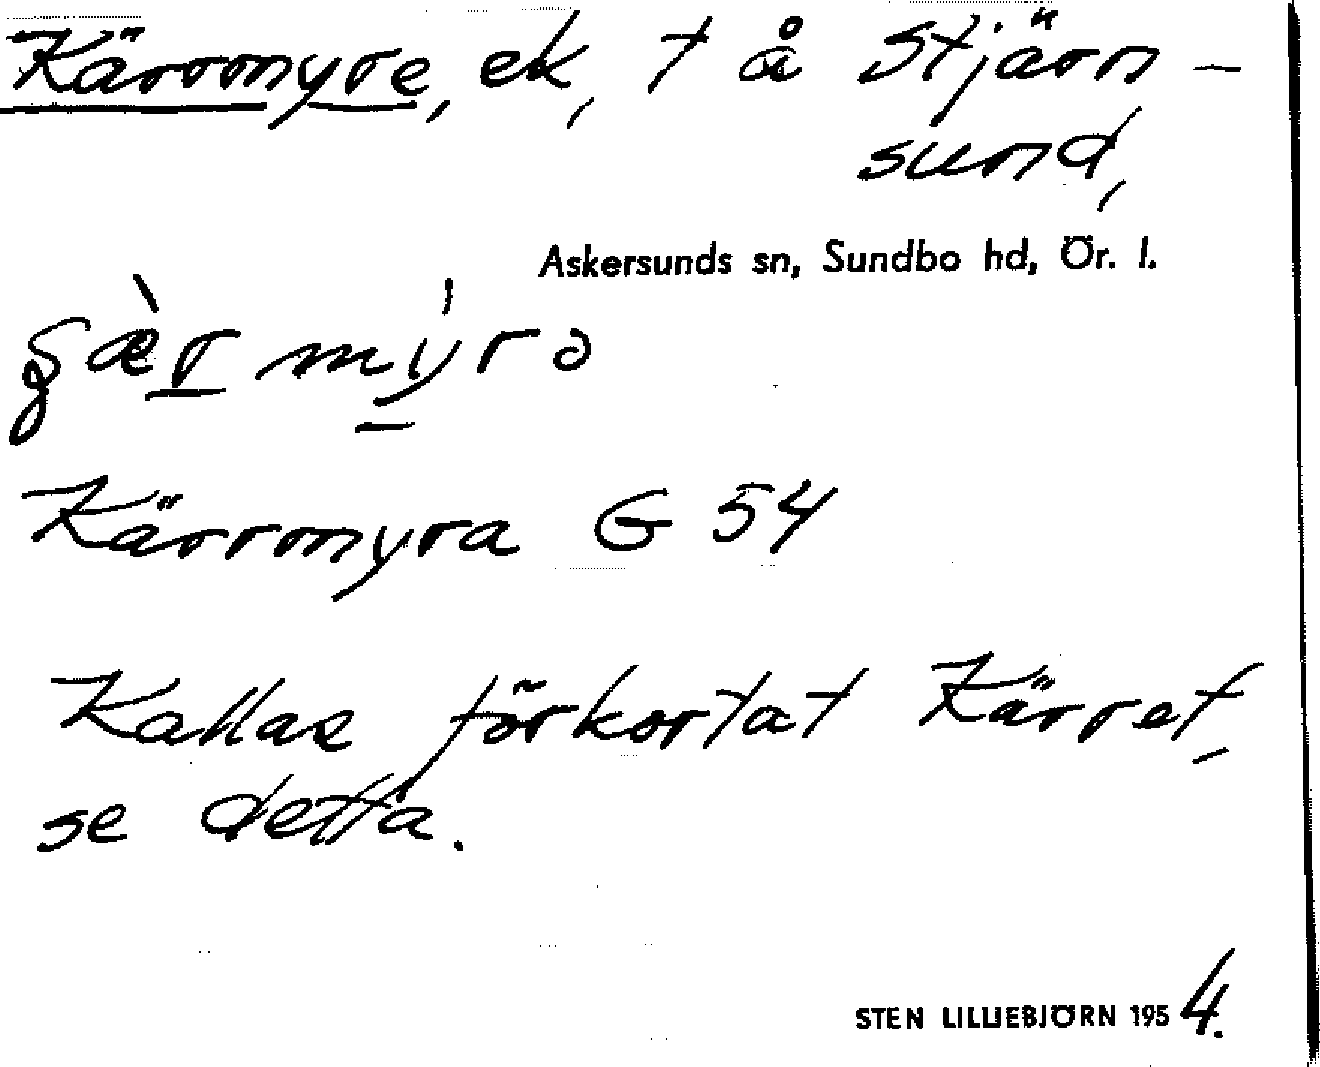 Kärrmyre, ek, t å Stjärn-
sund,
Askersunds sn, Sundbo hd, Ör. l.
Kärrmyra G 54
Kallas förkortat Kärret,
se detta.
STEN LILLIEBJÖRN 1954.